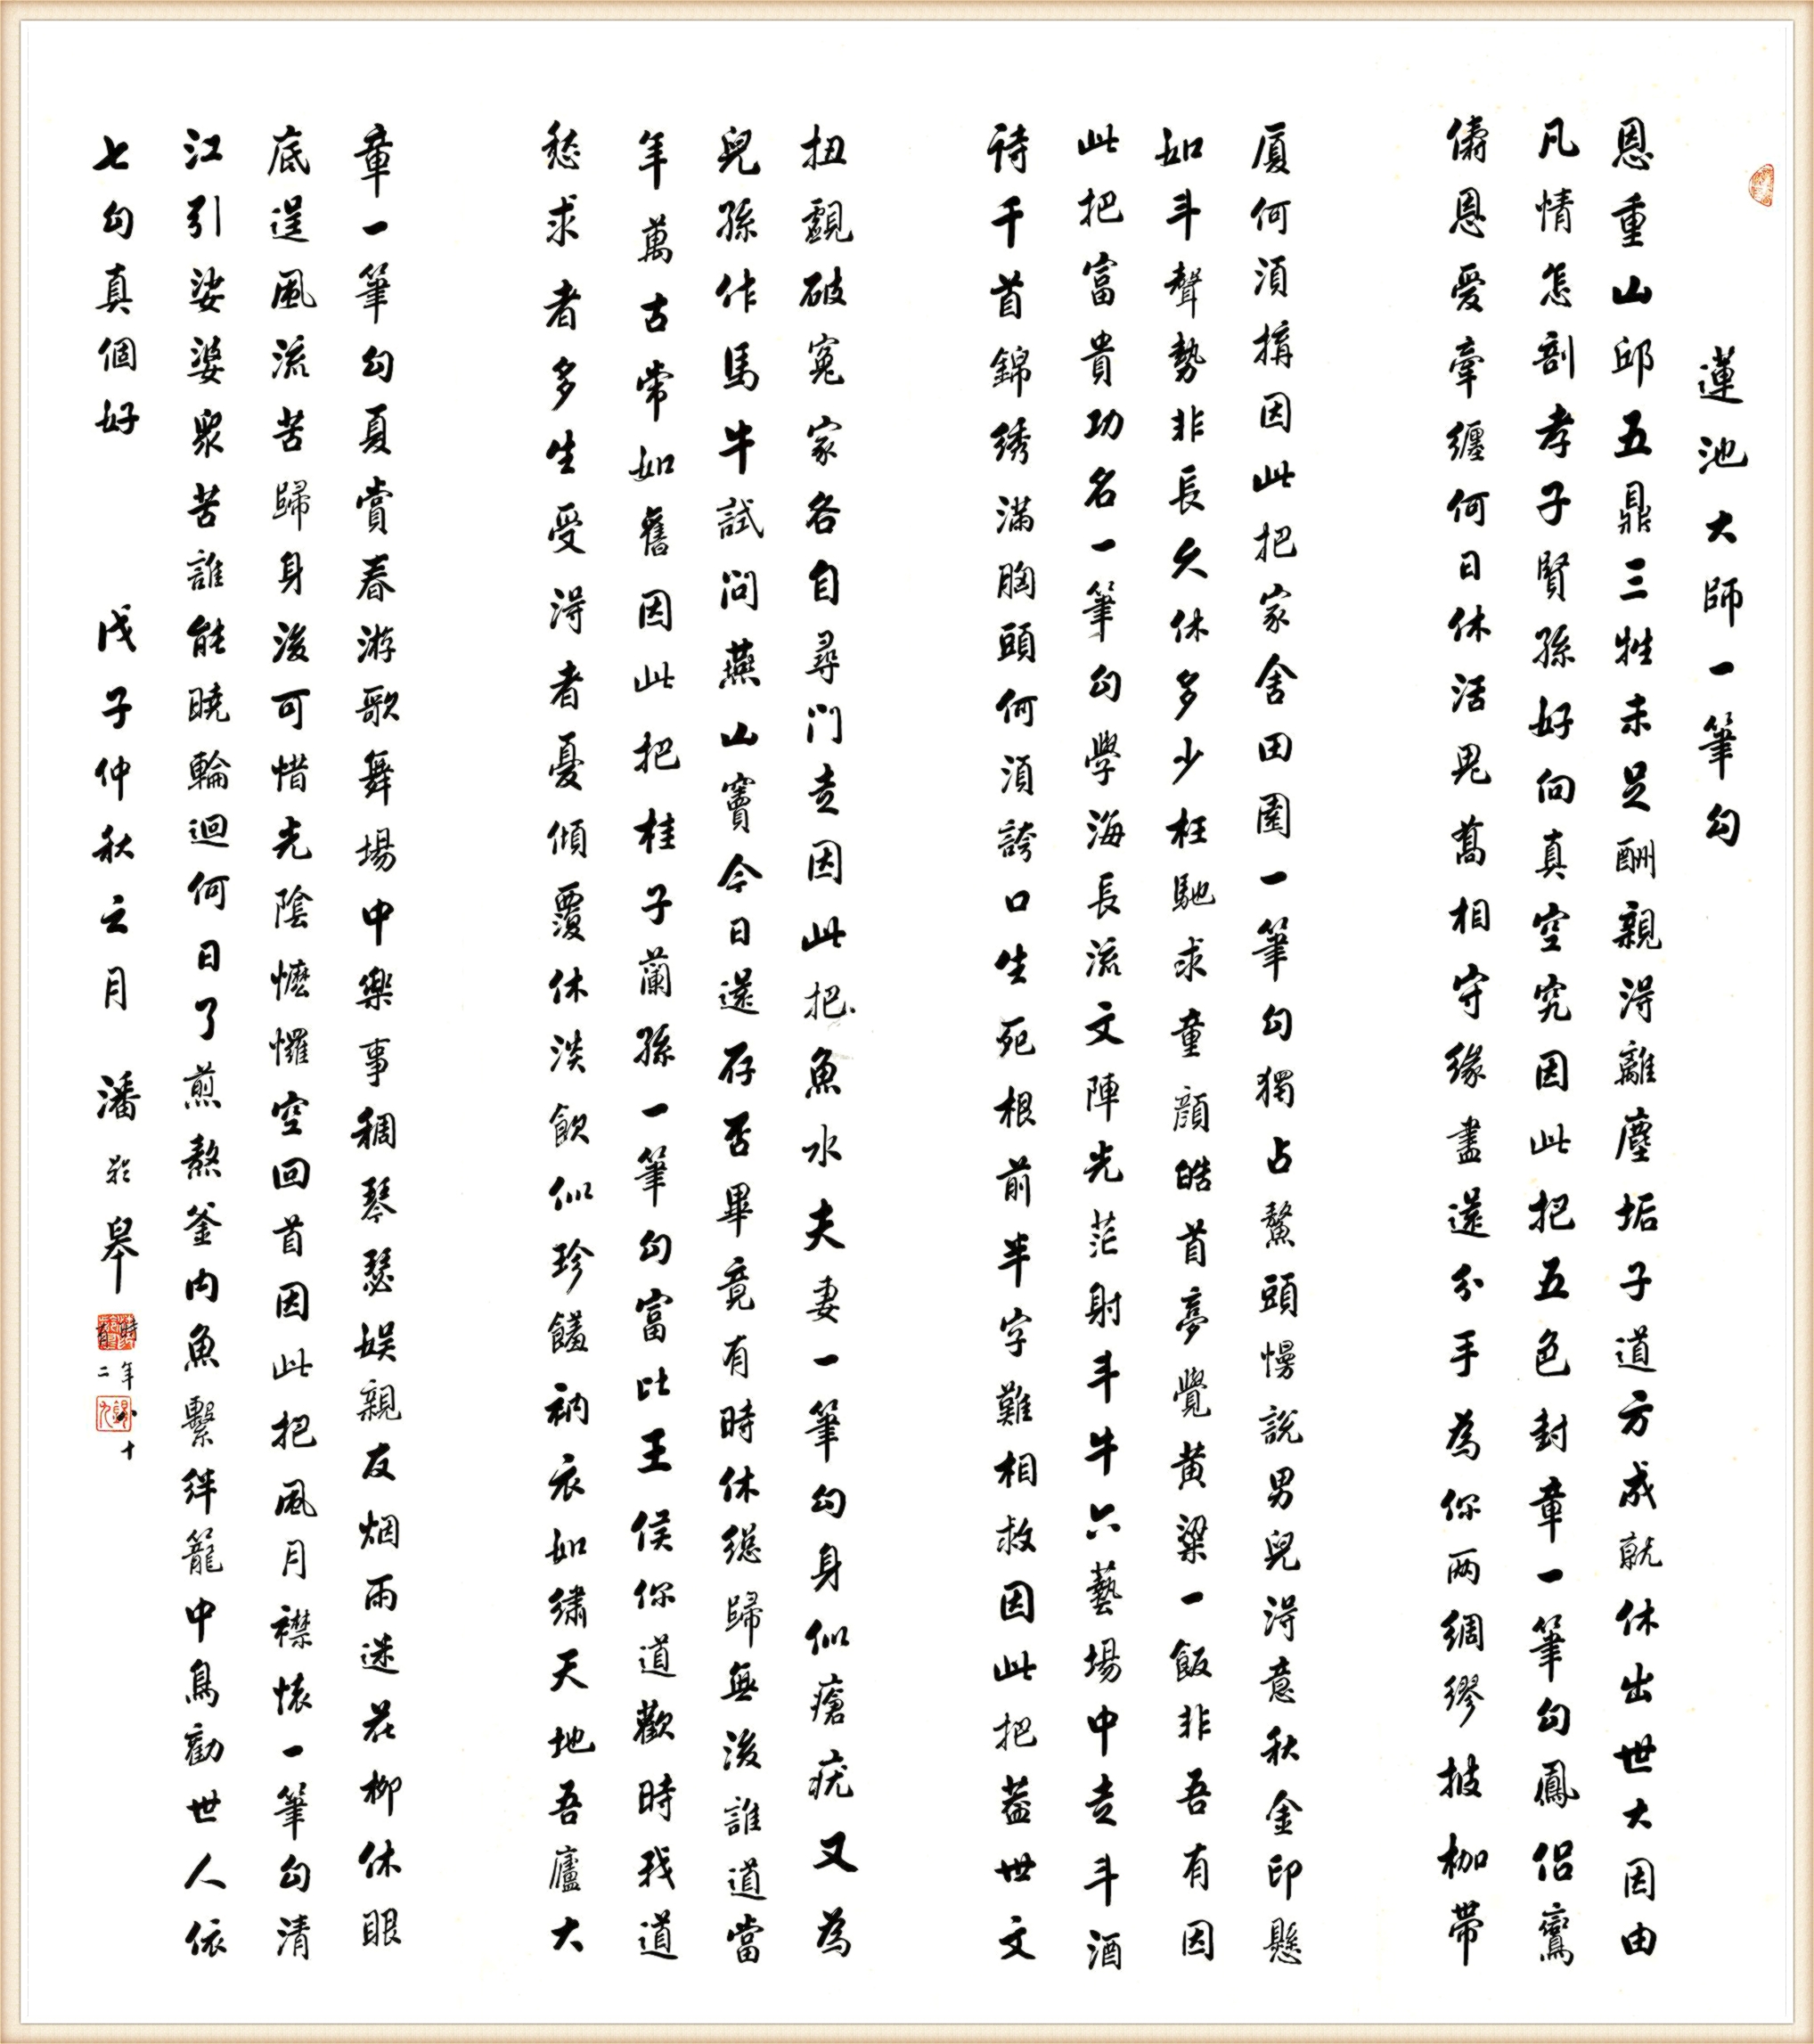 蓮池大師一筆勾
恩重山邱五鼎三牲未足酬親得離塵垢子道方成就休出世大因由
凡情怎剖孝子賢孫好向真空究因此把五色封章一筆勾鳳侶鸞
儔恩愛牽纏何日休活鬼喬相守緣盡還分手為你两綢繆披枷帶
扭覷破寃家各自尋门走因此把魚水夫妻一筆勾身似瘡疣又為
兒孫作馬牛試问燕山竇今日還存否畢竟有時休總歸無後誰道當
年萬古常如舊因此把桂子蘭孫一筆勾富比王侯你道歡時我道
愁求者多生受得者憂傾覆休淡飲似珍饈衲衣如繡天地吾廬大
厦何須搆因此把家舍田園一筆勾獨占鰲頭慢説男兒得意秋金印懸
如斗聲勢非長久休多少枉馳求童顔皓首夢覺黄粱一飯非吾有因
此把富貴功名一筆勾學海長流文陣光茫射斗牛六藝場中走斗酒
詩千首錦绣滿胸頭何須誇口生死根前半字難相救因此把蓋世文
章一筆勾夏賞春游歌舞場中樂事稠琴瑟娱親友烟雨迷花柳休眼
底逞風流苦歸身後可惜光陰懡㦬空回首因此把風月襟懷一筆勾清
江引娑婆衆苦誰能曉輪迴何日了煎熬釜内魚繫绊籠中鳥勸世人依
七勾真個好
戊子仲秋之月
潘
時年八十有二